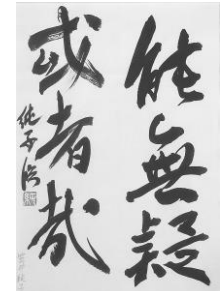 能無疑
或者哉
純子臨